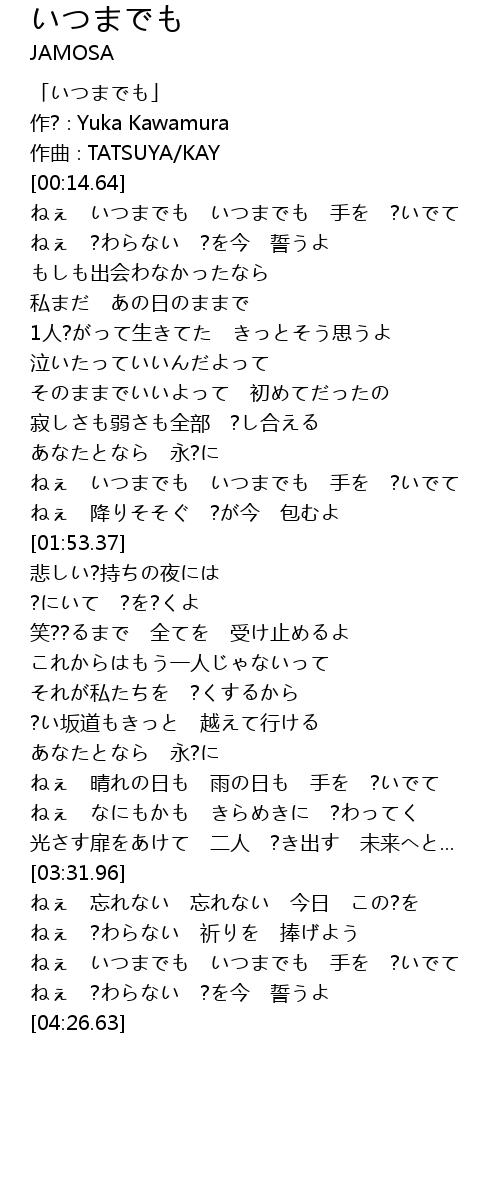 いつまでも
JAMOSA
「いつまでも」
作? : Yuka Kawamura
作曲 : TATSUYA/KAY
[00:14.64]
ねぇ　いつまでも　いつまでも　手を　?いでて
ねぇ　?わらない　?を今　誓うよ
もしも出会わなかったなら
私まだ　あの日のままで
1人?がって生きてた　きっとそう思うよ
泣いたっていいんだよって
そのままでいいよって　初めてだったの
寂しさも弱さも全部　?し合える
あなたとなら　永?に
ねぇ　いつまでも　いつまでも　手を　?いでて
ねぇ　降りそそぐ　?が今　包むよ
[01:53.37]
悲しい?持ちの夜には
?にいて　?を?くよ
笑??るまで　全てを　受け止めるよ
これからはもう一人じゃないって
それが私たちを　?くするから
?い坂道もきっと　越えて行ける
あなたとなら　永?に
ねぇ　晴れの日も　雨の日も　手を　?いでて
ねぇ　なにもかも　きらめきに　?わってく
光さす扉をあけて　二人　?き出す　未来へと...
[03:31.96]
ねぇ　忘れない　忘れない　今日　この?を
ねぇ　?わらない　祈りを　捧げよう
ねぇ　いつまでも　いつまでも　手を　?いでて
ねぇ　?わらない　?を今　誓うよ
[04:26.63]